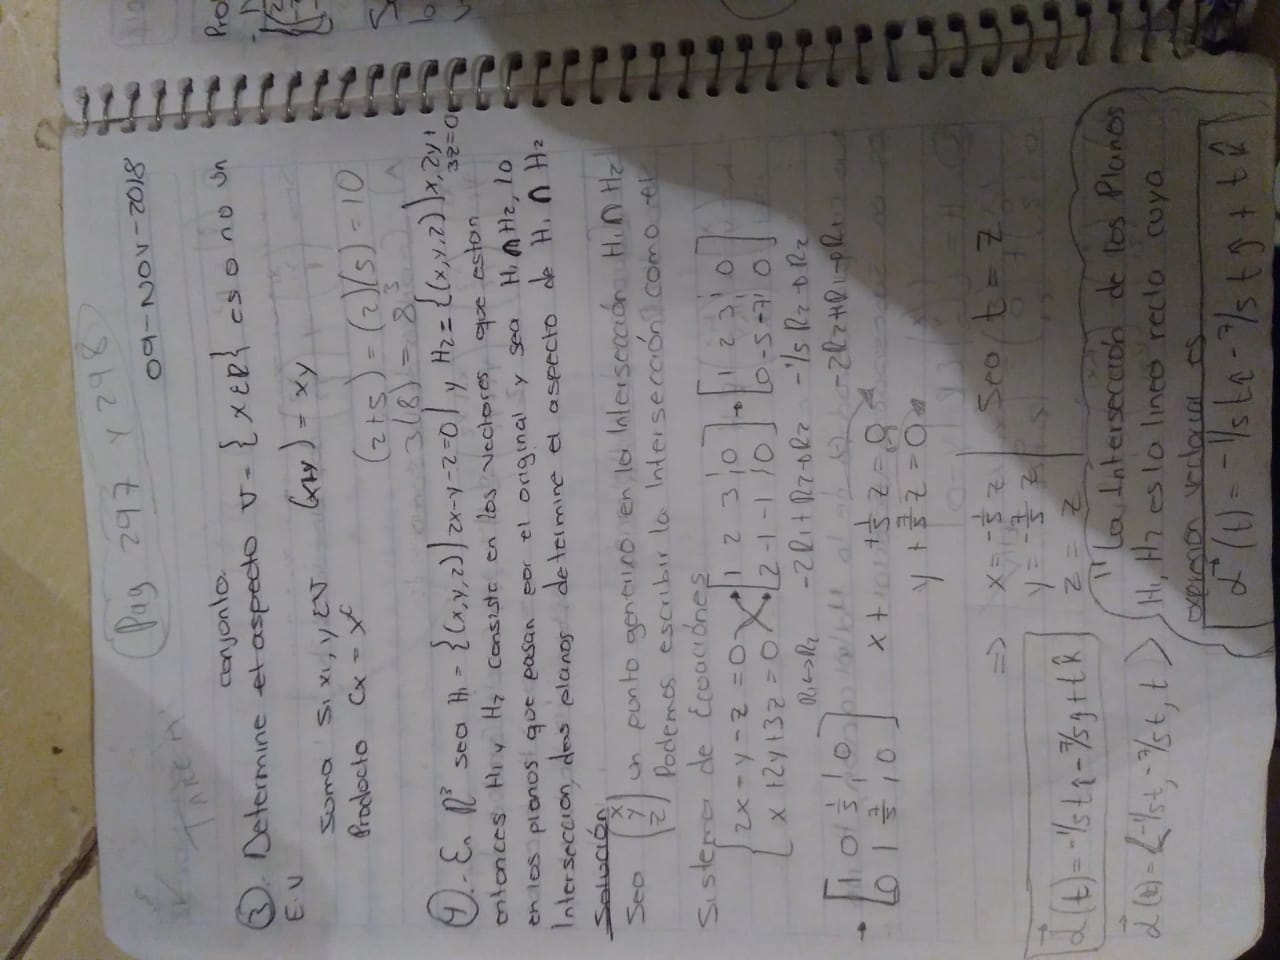 Pag 297 y 298
09-NOV-2018
TAREA
conjunto
③. Determine el aspecto V = { x ∈ R { es o no un
E.V
Suma Si x, y ∈ V (x+y) = xy
Producto Cx = x^c
(2+5) = (2)(5) = 10
3(8) = 8³
④.- En R³ sea H₁ = {(x,y,z)| 2x-y-z=0} y H₂ = {(x,y,z)| x,2y+
3z=0
entonces H₁ y H₂ consiste en los vectores que estan
en los planos que pasan por el original y sea H₁ ∩ H₂, lo
Interseccion, dos planos determine el aspecto de H₁ ∩ H₂
Solución
Sea (x y z) un punto generico en la Intersección H₁ ∩ H₂
Podemos escribir la Intersección como el
Sistema de Ecuaciónes
{ 2x - y - z = 0 [1 2 3 | 0] → [1 2 3 | 0]
{ x + 2y + 3z = 0 [2 -1 -1 | 0] [0 -5 -7 | 0]
R₁↔R₂ -2R₁+R₂→R₂ -1/5 R₂→R₂
-2R₂+R₁→R₁
→ [1 0 1/5 | 0] x + 1/5 z = 0
[0 1 7/5 | 0] y + 7/5 z = 0
=> x = -1/5 z Sea t = z
y = -7/5 z
z = z
α(t) = -1/5 t î - 7/5 ĵ + t k
α(t) = <-1/5 t, -7/5 t, t>
"La Intersección de los Planos
H₁, H₂ es lo lineo recta cuya
expresión vectorial es
α(t) = -1/5 t î - 7/5 t ĵ + t k